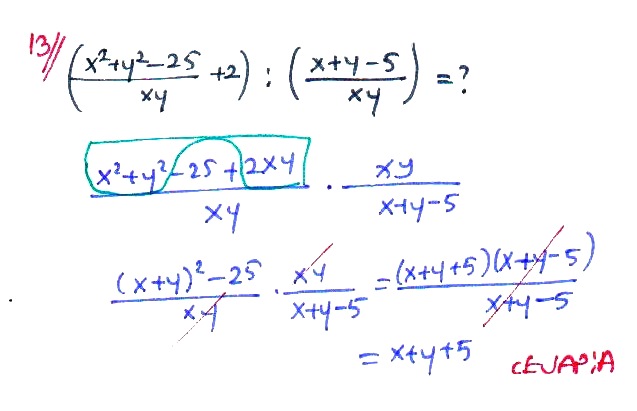 13// ((x²+y²-25)/(xy) +2) : ((x+y-5)/(xy)) = ?
(x²+y²-25+2xy)/(xy) · (xy)/(x+y-5)
((x+y)²-25)/(xy) · (xy)/(x+y-5) = ((x+y+5)(x+y-5))/(x+y-5)
= x+y+5 CEVAP:A